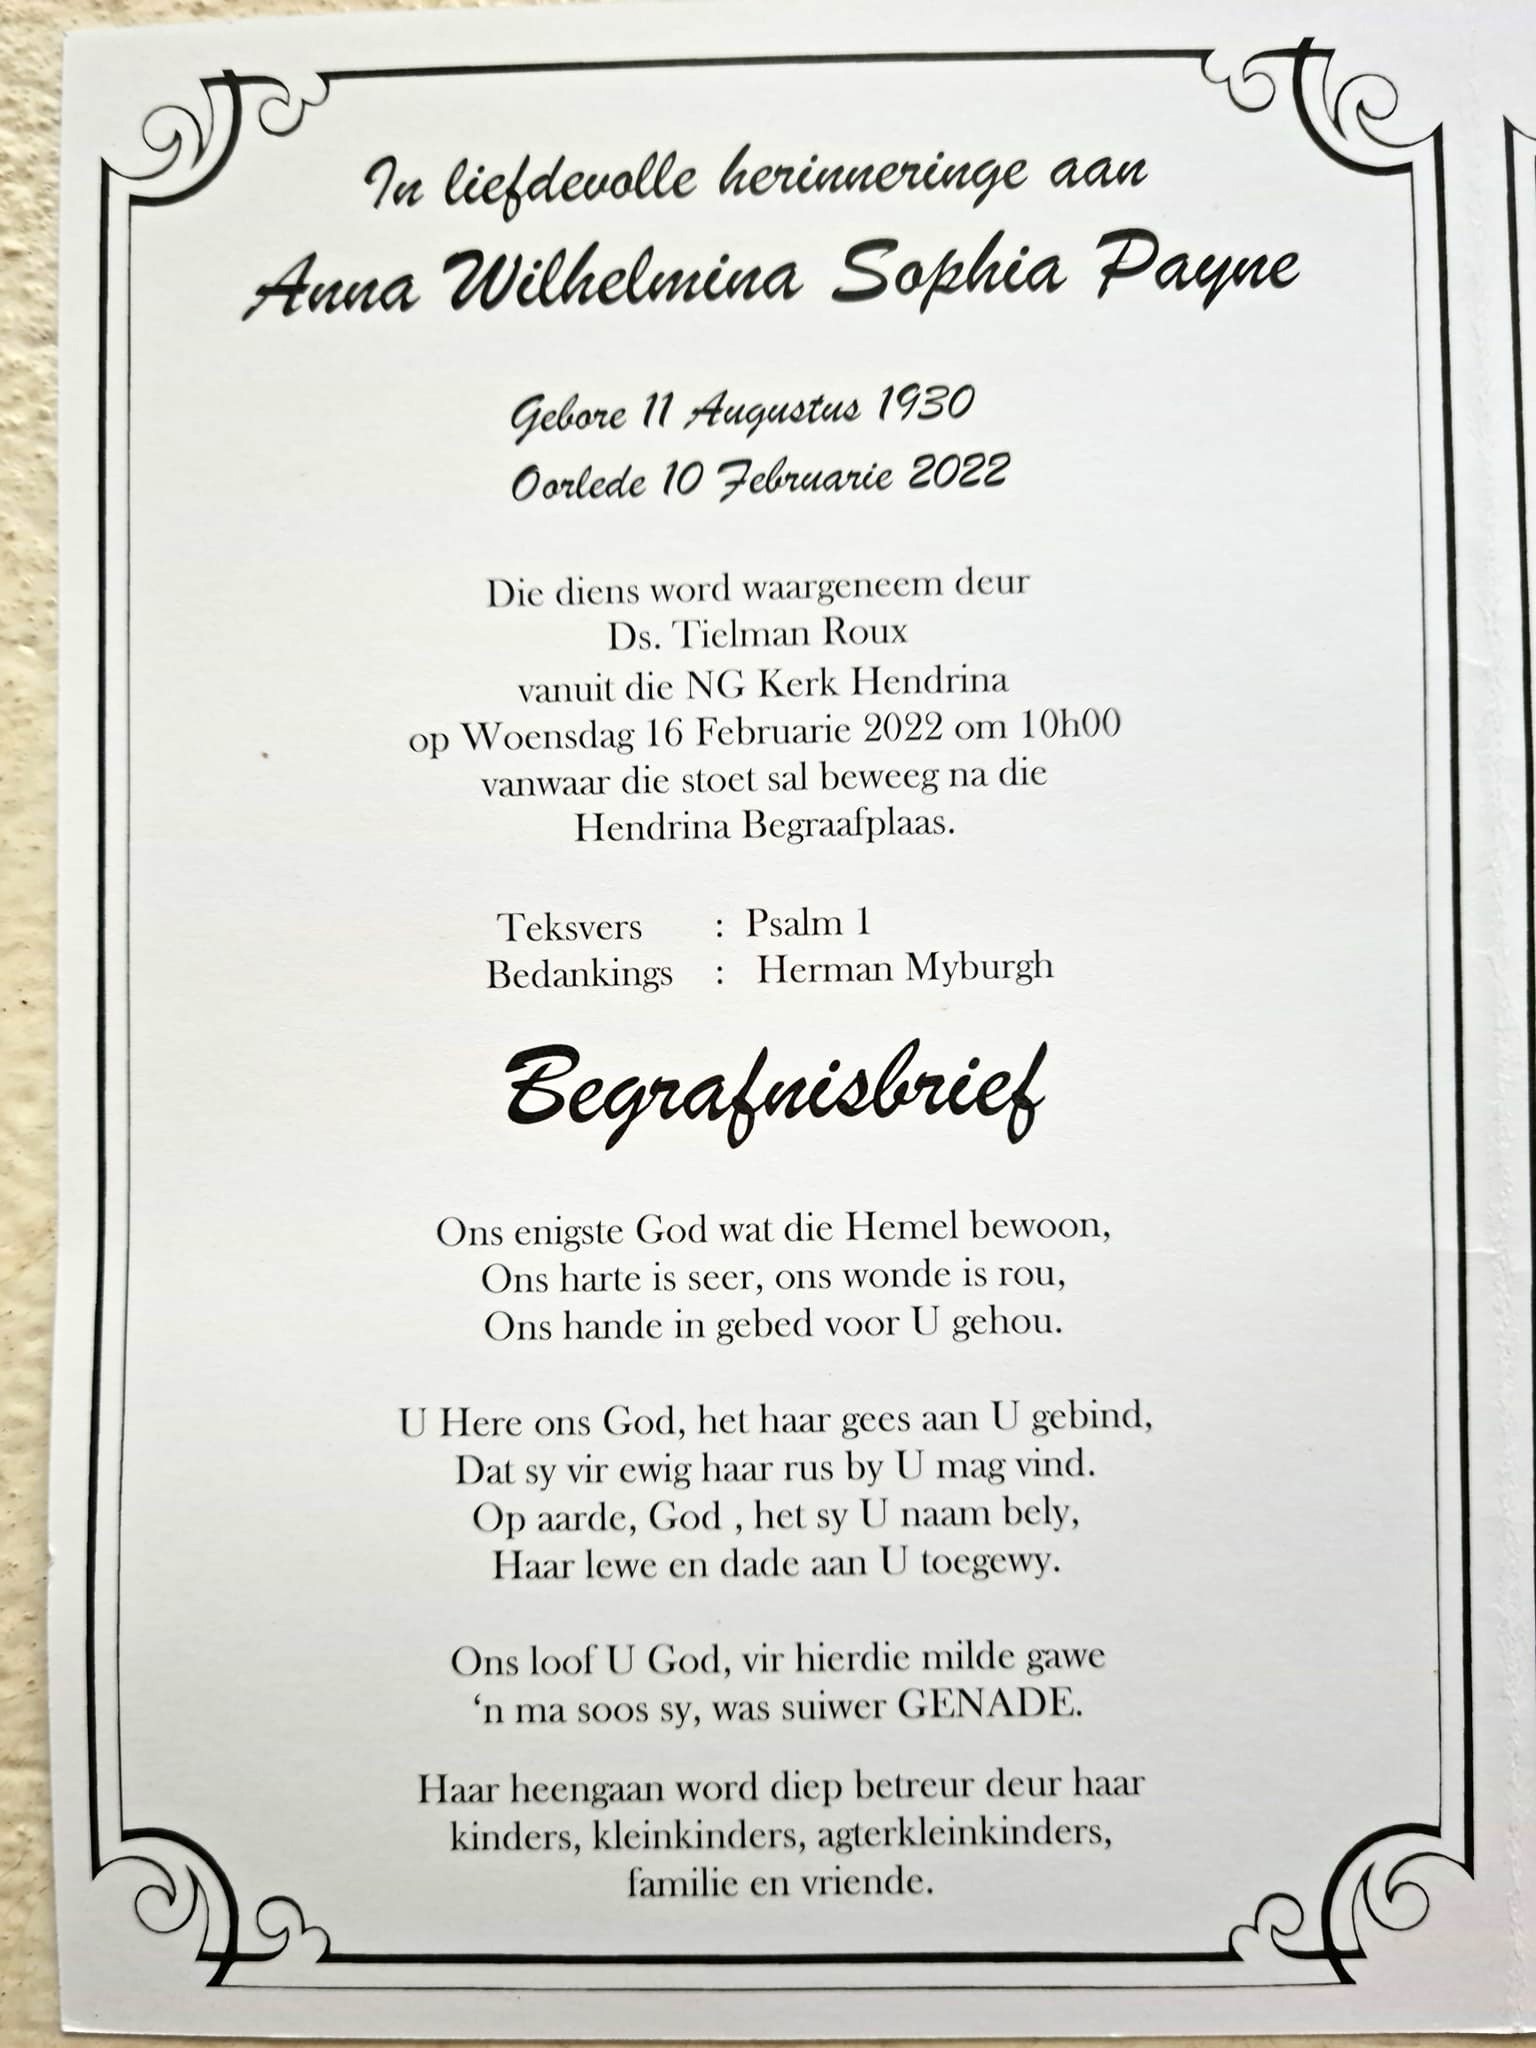 In liefdevolle herinneringe aan
Anna Wilhelmina Sophia Payne
Gebore 11 Augustus 1930
Oorlede 10 Februarie 2022
Die diens word waargeneem deur
Ds. Tielman Roux
vanuit die NG Kerk Hendrina
op Woensdag 16 Februarie 2022 om 10h00
vanwaar die stoet sal beweeg na die
Hendrina Begraafplaas.
Teksvers : Psalm 1
Bedankings : Herman Myburgh
Begrafnisbrief
Ons enigste God wat die Hemel bewoon,
Ons harte is seer, ons wonde is rou,
Ons hande in gebed voor U gehou.
U Here ons God, het haar gees aan U gebind,
Dat sy vir ewig haar rus by U mag vind.
Op aarde, God , het sy U naam bely,
Haar lewe en dade aan U toegewy.
Ons loof U God, vir hierdie milde gawe
‘n ma soos sy, was suiwer GENADE.
Haar heengaan word diep betreur deur haar
kinders, kleinkinders, agterkleinkinders,
familie en vriende.